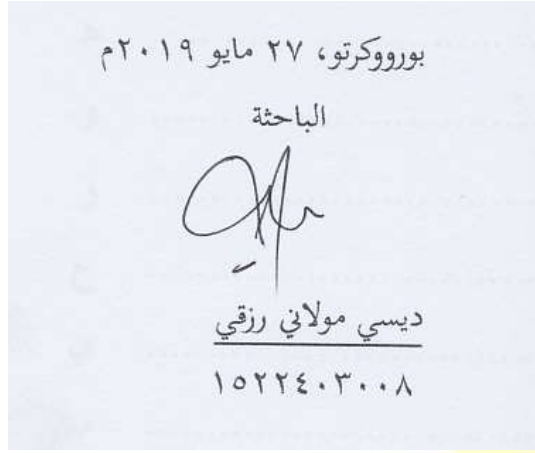 بورووكرتو، ٢٧ مايو ٢٠١٩م
الباحثة
ديسي مولاني رزقي
١٥٢٢٤٠٣٠٠٨